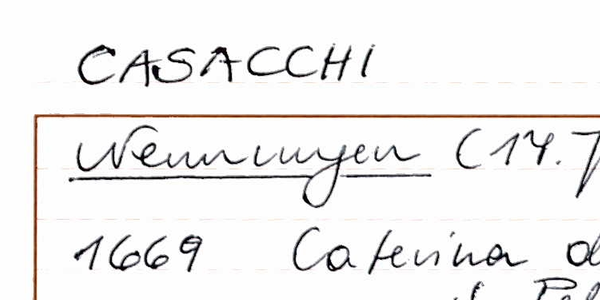 CASACCHI
Nenningen (14.
1669 Caterina